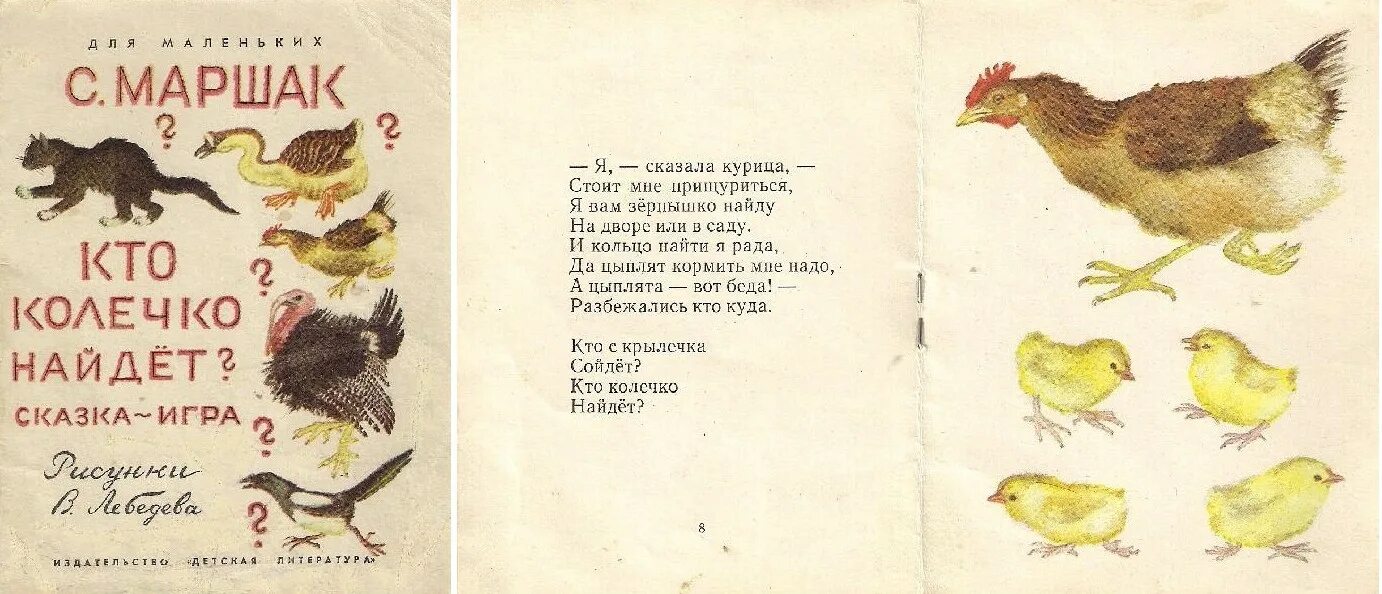 ДЛЯ МАЛЕНЬКИХ
С. МАРШАК
?
?
КТО
?
КОЛЕЧКО
НАЙДЁТ?
СКАЗКА~ИГРА
?
Рисунки
В. Лебедева
?
ИЗДАТЕЛЬСТВО «ДЕТСКАЯ ЛИТЕРАТУРА»
— Я, — сказала курица, —
Стоит мне прищуриться,
Я вам зёрнышко найду
На дворе или в саду.
И кольцо найти я рада,
Да цыплят кормить мне надо,
А цыплята — вот беда! —
Разбежались кто куда.
Кто с крылечка
Сойдёт?
Кто колечко
Найдёт?
8